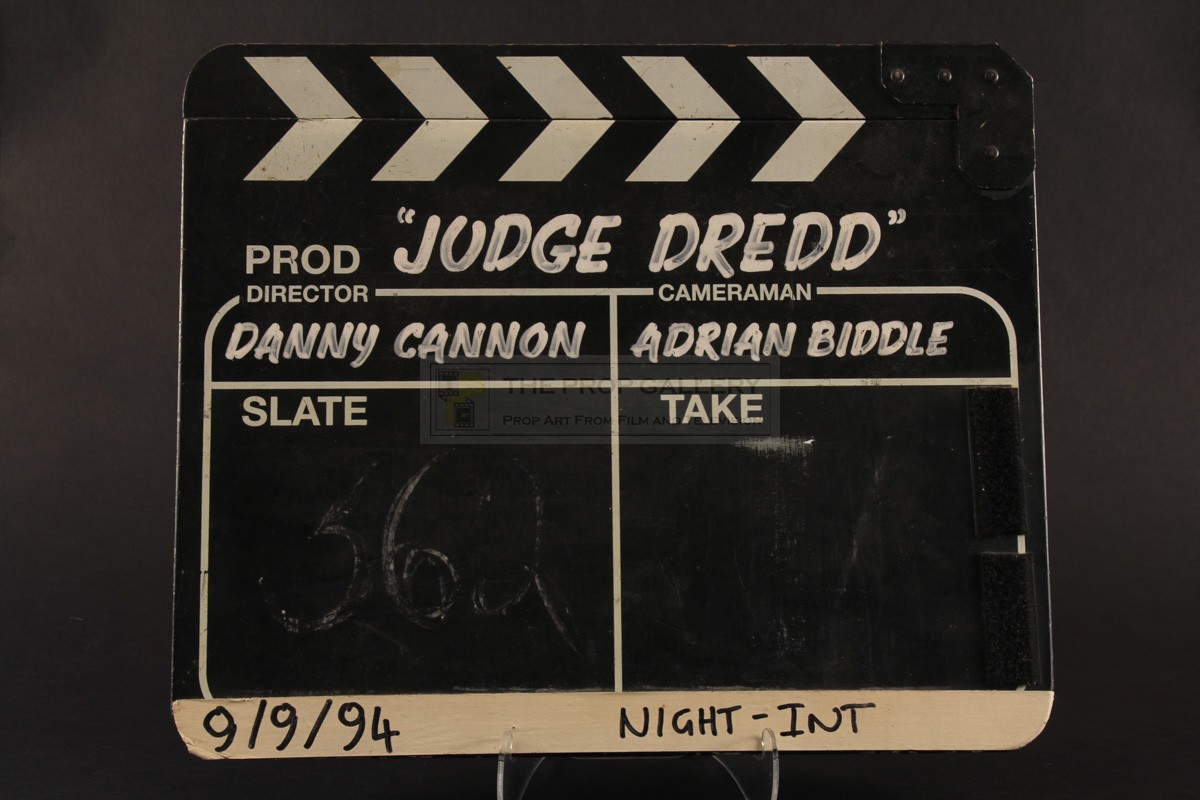 PROD "JUDGE DREDD"
DIRECTOR CAMERAMAN
DANNY CANNON ADRIAN BIDDLE
THE PROP GALLERY
SLATE TAKE
PROP ART FROM FILM AND TELEVISION
362
9/9/94 NIGHT-INT